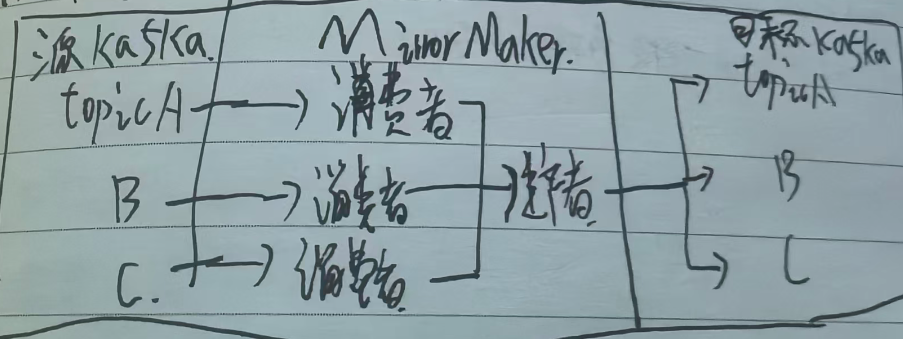 源Kafka MirrorMaker. 目标Kafka
topicA 消费者 topicA
B 消费者 B
C. 消费者 C